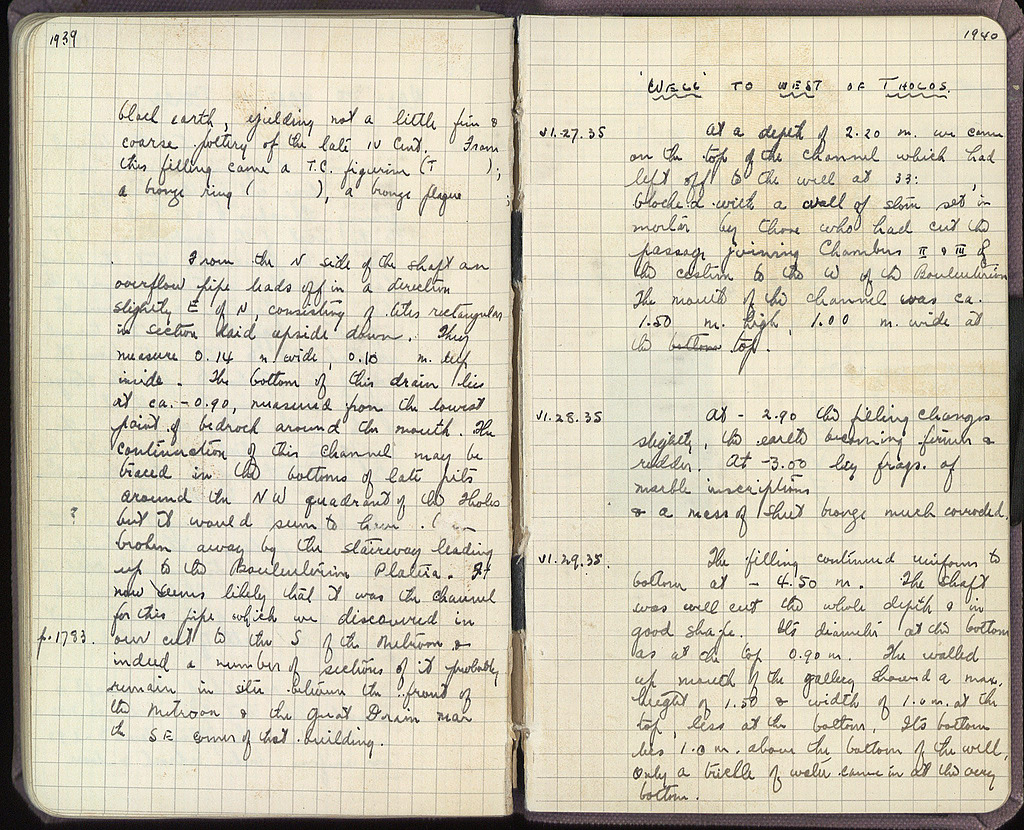 1939
black earth, yielding not a little fine &
coarse pottery of the late IV Cent. From
this filling came a T.C. figurine (T );
a bronze ring ( ), a bronze plaque
;
From the N side of the shaft an
overflow pipe leads off in a direction
slightly E of N, consisting of tiles rectangular
in section laid upside down. They
measure 0.14 m wide, 0.10 m. deep
inside. The bottom of this drain lies
at ca. - 0.90, measured from the lowest
point of bedrock around the mouth. The
continuation of this channel may be
traced in the bottoms of late pits
around the NW quadrant of the Tholos
? but it would seem to have
broken away by the stairway leading
up to the Bouleuterion Plateia. It
now seems likely that it was the channel
for this pipe which we discovered in
p. 1783. our cut to the S of the Metroon &
indeed a number of sections of it probably
remain in situ between the front of
the Metroon & the Great Drain near
the SE corner of that building.
1940
'WELL' TO WEST OF THOLOS.
VI.27.35 At a depth of 2.20 m. we came
on the top of the channel which had
left off to the well at 33: ,
blocked with a wall of stone set in
mortar by those who had cut the
passage joining Chambers II & III of
the cistern to the W of the Bouleuterion
The mouth of the channel was ca.
1.50 m. high, 1.00 m. wide at
the bottom top.
VI.28.35 At - 2.90 the filling changes
slightly, the earth becoming firmer &
redder. At -3.00 big frags. of
marble inscriptions
& a mass of sheet bronze much corroded.
VI.29.35. The filling continued uniform to
bottom at - 4.50 m. The shaft
was well cut the whole depth & in
good shape. Its diameter at the bottom
as at the top 0.90 m. The walled
up mouth of the gallery showed a max.
height of 1.50 & width of 1.0 m. at the
top, less at the bottom. Its bottom
lies 1.0 m. above the bottom of the well.
Only a trickle of water came in at the very
bottom.